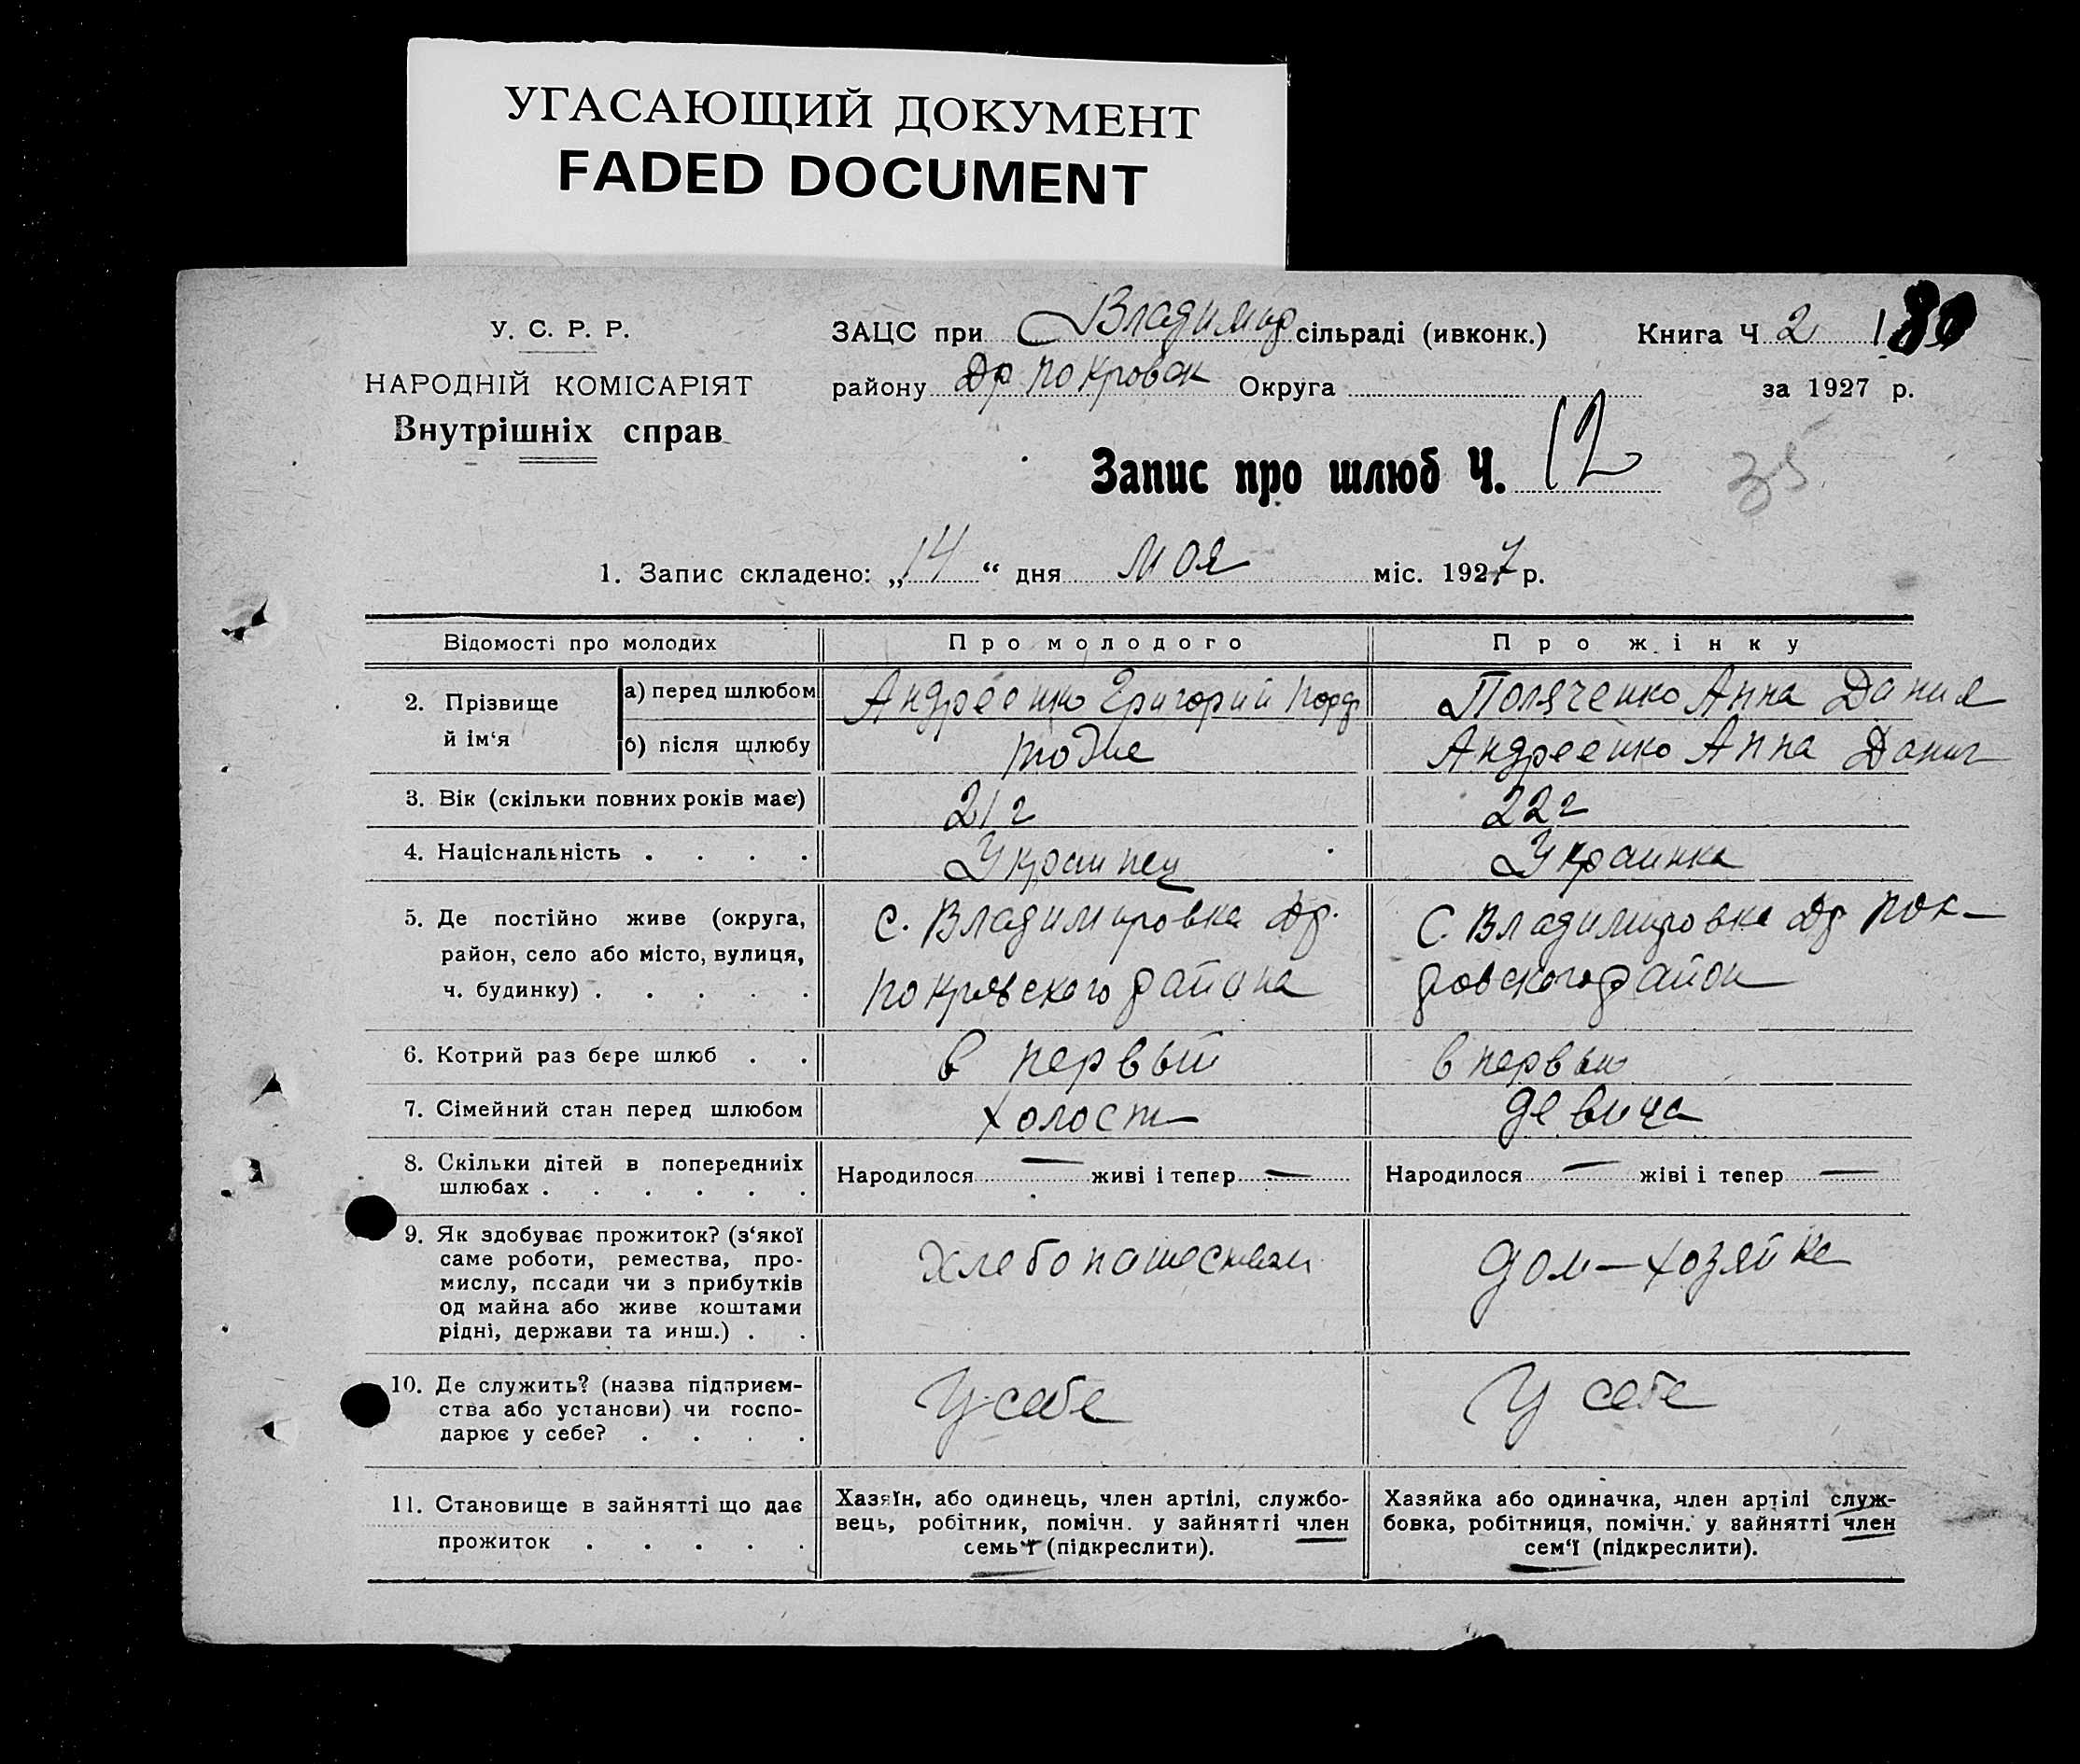 УГАСАЮЩИЙ ДОКУМЕНТ
FADED DOCUMENT
У. С. Р. Р.
НАРОДНІЙ КОМІСАРІЯТ
Внутрішніх справ
ЗАЦС при Владимир сільраді (ивконк.) Книга Ч 2
району Др Покровск Округа за 1927 р.
Запис про шлюб Ч. 12
35
1. Запис складено: „14“ дня мая міс. 1927 р.
Відомості про молодих Про молодого Про жінку
2. Прізвище й ім‘я
а) перед шлюбом Андреенко Григорий Поляченко Анна Данил
б) після шлюбу тоже Андреенко Анна Данил
3. Вік (скільки повних років має) 21 г 22 г
4. Національність . . . . Украинец Украинка
5. Де постійно живе (округа, с. Владимировка Др. С Владимировка Др Пок-
район, село або місто, вулиця, Покровского района ровского район
ч. будинку) . . . . .
6. Котрий раз бере шлюб . . в первый в первый
7. Сімейний стан перед шлюбом холост девица
8. Скільки дітей в попередниіх Народилося — живі і тепер — Народилося — жіві і тепер —
шлюбах . . . . . .
9. Як здобуває прожиток? (з‘якої
саме роботи, ремества, про- Хлебопашеством дом-хозяйка
мислу, посади чи з прибутків
од майна або живе коштами
рідні, держави та инш.) . .
10. Де служить? (назва підприєм- У себе У себе
ства або установи) чи госпо-
дарює у себе? . . . .
11. Становище в зайнятті що дає Хазяїн, або одинець, член артілі, службо- Хазяйка або одиначка, член артілі служ-
прожиток . . . . . вець, робітник, помічн. у зайнятті член бовка, робітниця, помічн. у зайнятті член
семь‘ї (підкреслити). сем‘ї (підкреслити).